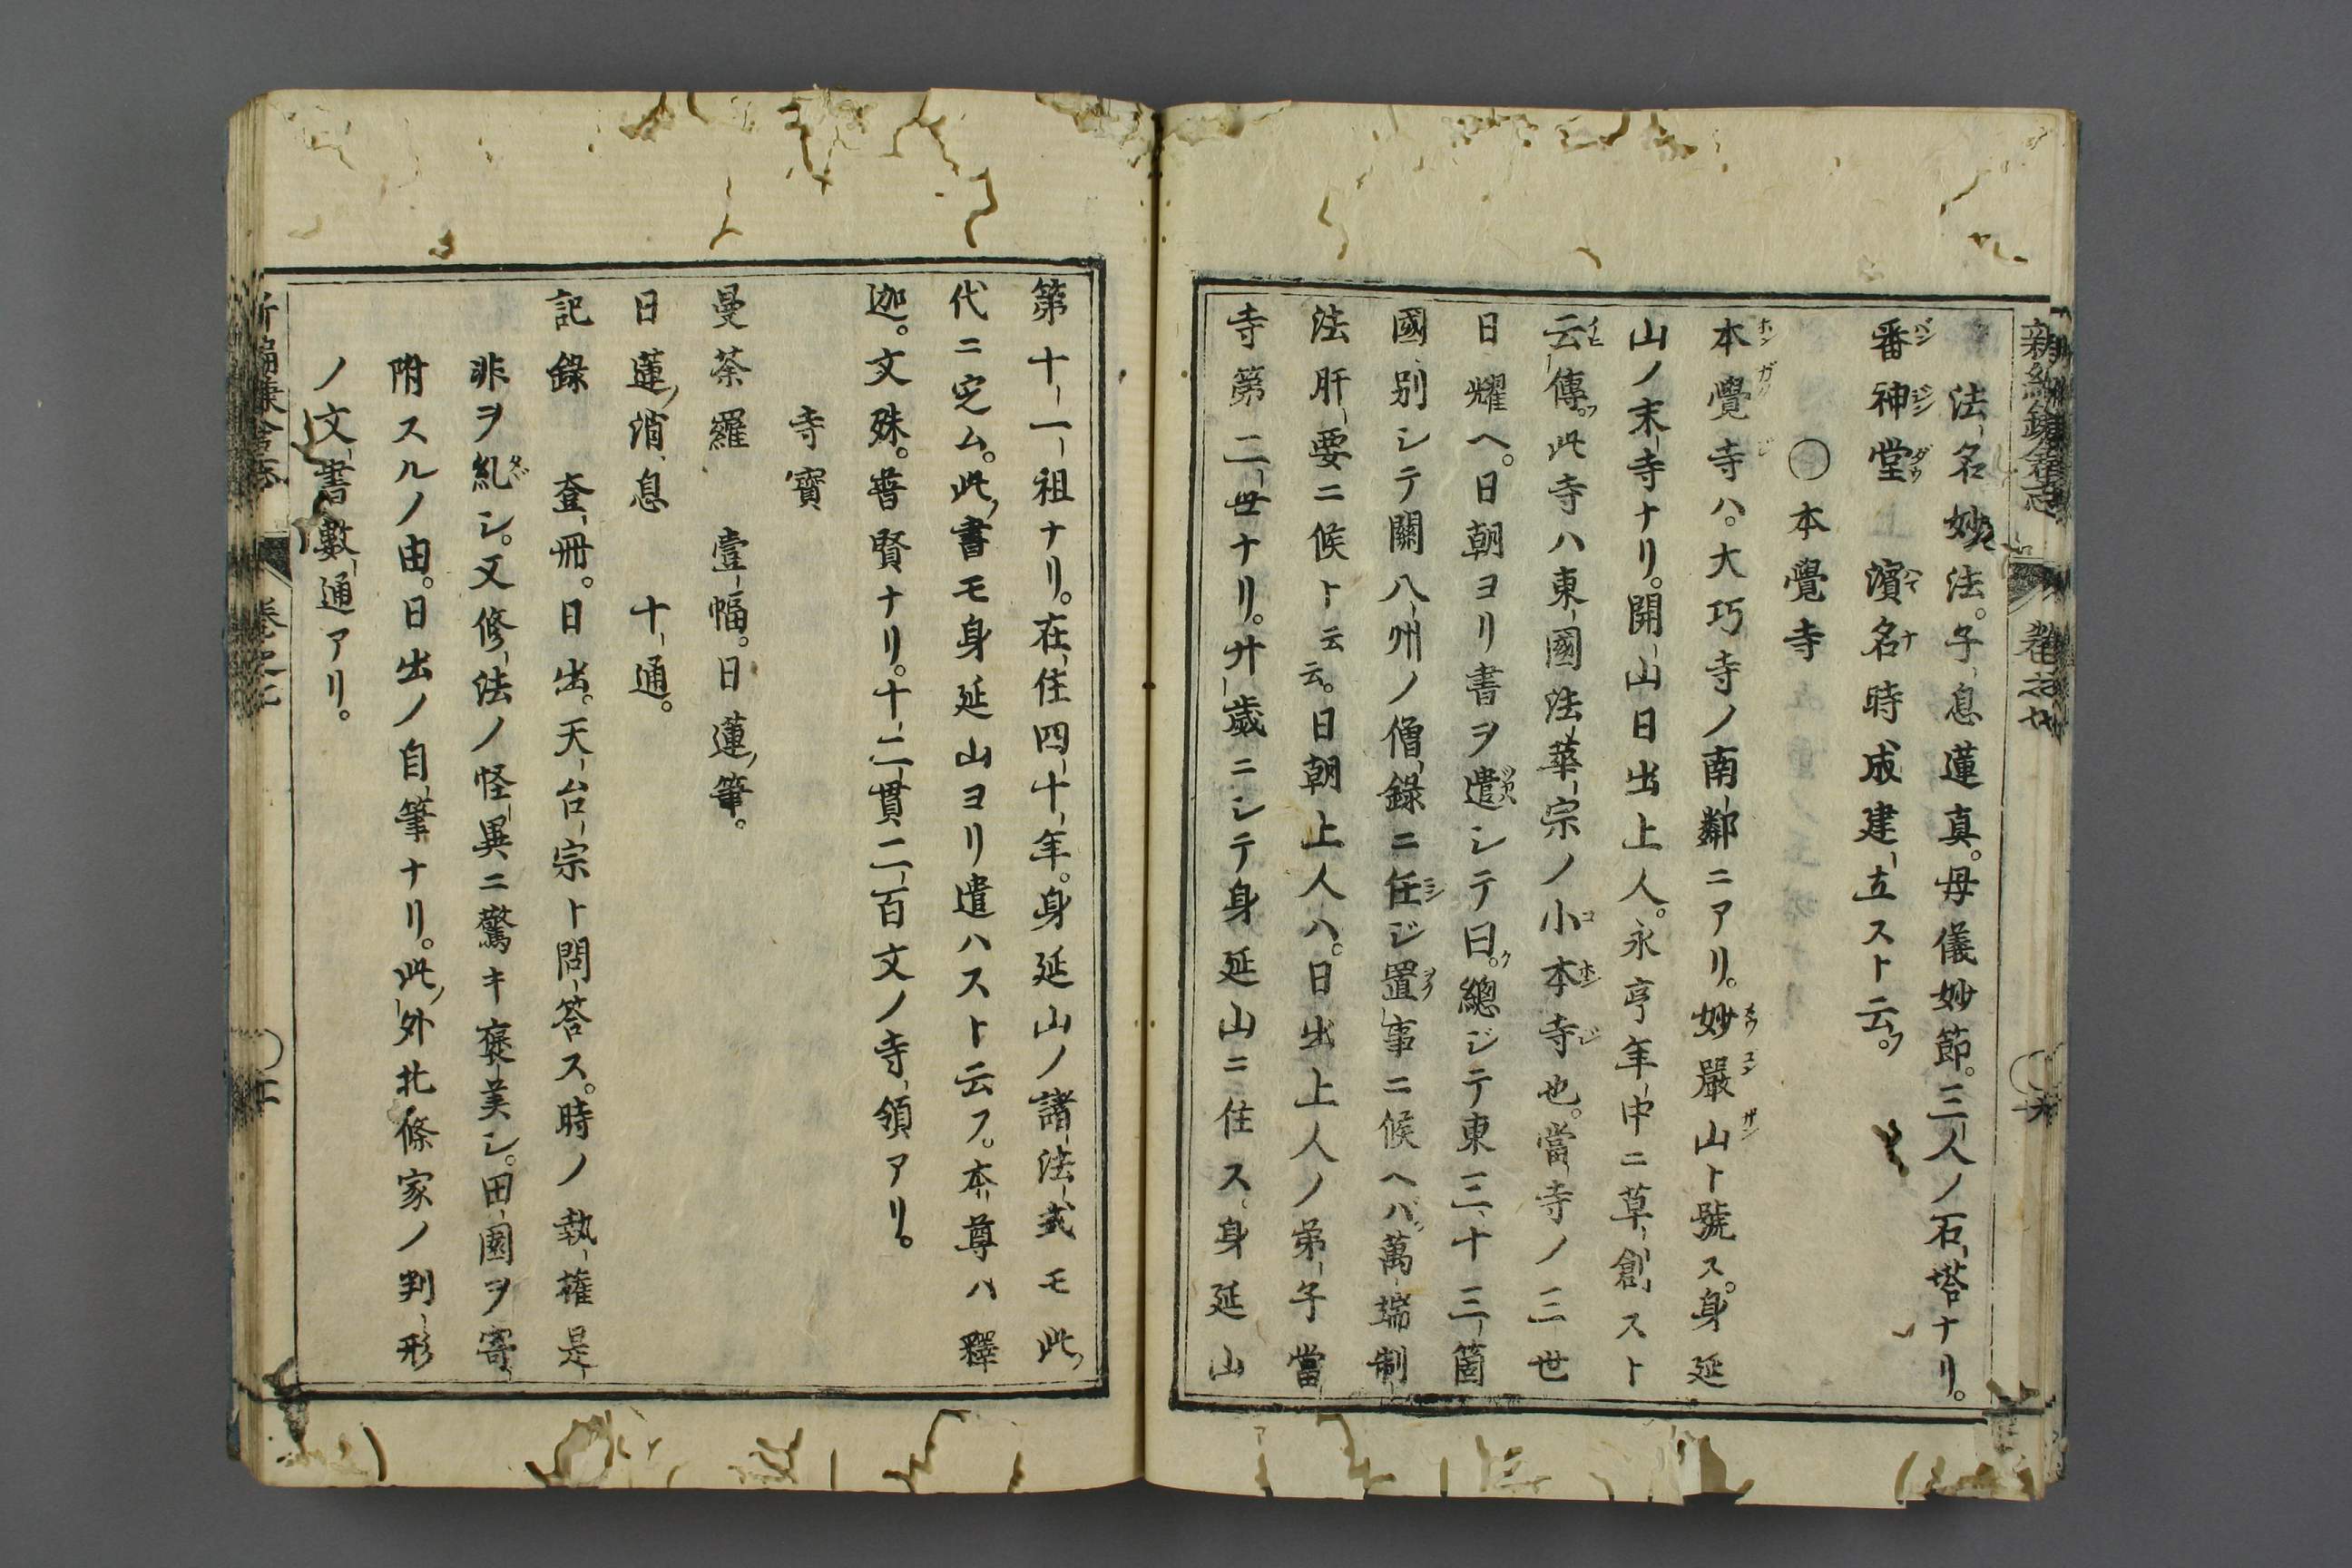 新編鎌倉志 卷之七
法名妙法。子息蓮真。母儀妙節。三人ノ石塔ナリ。
番神堂 濱名時成建立スト云フ。
○本覺寺
本覺寺ハ。大巧寺ノ南鄰ニアリ。妙嚴山ト號ス。身延
山ノ末寺ナリ。開山日出上人。永享年中ニ草創スト
云傳フ。此寺ハ東國法華宗ノ小本寺也。當寺ノ三世
日耀ヘ。日朝ヨリ書ヲ遣シテ曰ク。總ジテ東三十三箇
國別シテ關八州ノ僧錄ニ任ジ置事ニ候ヘバ萬端制
法肝要ニ候ト云云。日朝上人ハ。日出上人ノ弟子當
寺第二世ナリ。廾歲ニシテ身延山ニ住ス。身延山
第十一祖ナリ。在住四十年。身延山ノ諸法式モ此
代ニ定ム。此書モ身延山ヨリ遣ハスト云フ。本尊ハ釋
迦。文殊。普賢ナリ。十二貫二百文ノ寺領アリ。
寺寳
曼荼羅 壹幅。日蓮筆。
日蓮消息 十通。
記錄 壹冊。日出。天台宗ト問答ス。時ノ執權是
非ヲ糺シ。又修法ノ怪異ニ驚キ褒美シ。田園ヲ寄
附スルノ由。日出ノ自筆ナリ。此外北條家ノ判形
ノ文書數通アリ。
新編鎌倉志 卷之七